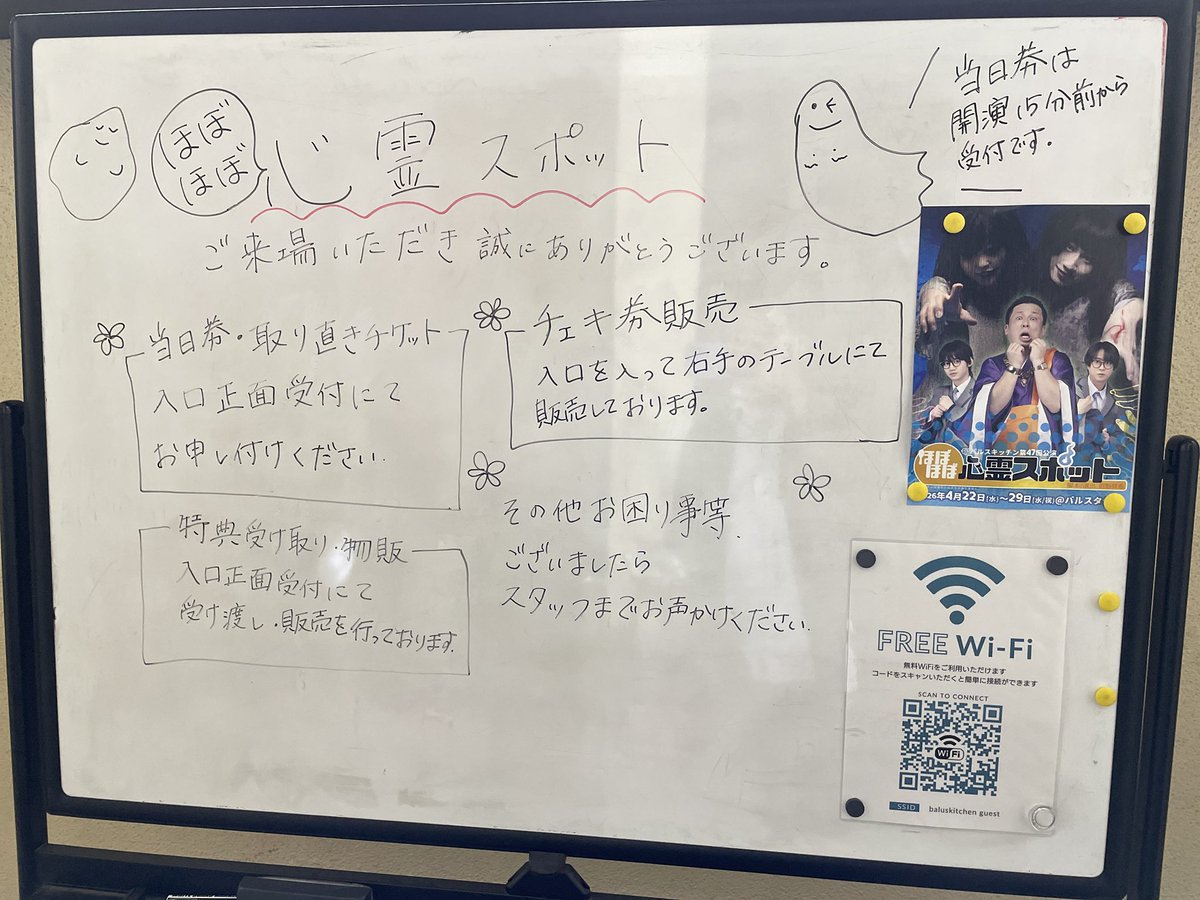 ほぼ
ほぼ
じ霊スポット
当日券は
開演15分前から
受付です。
ご来場いただき誠にありがとうございます。
当日券・取り直きチケット
入口正面受付にて
お申し付けください.
チェキ券販売
入口を入って右手のテーブルにて
販売しております。
特典受け取り・物販
入口正面受付にて
受け渡し・販売を行っております.
その他お困り事等.
ございましたら
スタッフまでお声かけください.
@バルスキッチン第47回公演
ほぼ
ほぼ
心霊スポット
26年4月22日(水)〜29日(水/祝)@バルスタ
FREE Wi-Fi
無料WiFiをご利用いただけます
コードをスキャンいただくと簡単に接続ができます
SCAN TO CONNECT
WiFi
SSID baluskitchen guest